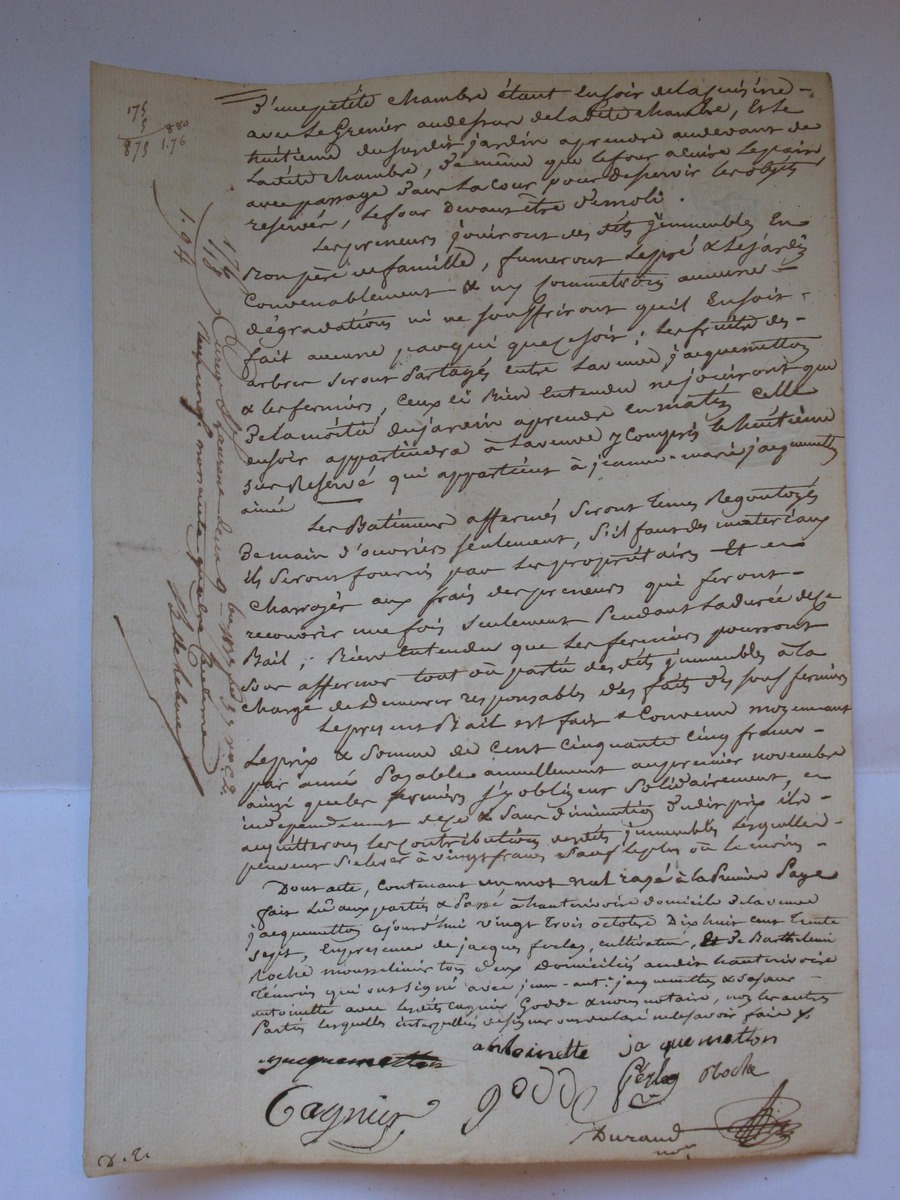 175
5
875
880
1.76
D'une petite chambre étant Ensoir de la cuisine
avec Le Grenier audessus de la dite chambre, Et le
huitième du susdit jardin aprendre audevant de
La dite chambre, De même que le four acuire Lepain
avec passage Dans La cour, pour desservir les objets
reservés, Le four Devant être Démoli.
Les preneurs jouiront des dits jmmeubles En
Bon père de famille, fumeront Le pré & Le jardin
Convenablement & ny sommettrons aucune
dégradations ni ne souffriront quil En soit
fait aucune parqui que ce soit; Les fruits des
arbres seront Partagés entre La veuve jacquemetton
& les fermiers, Ceux ci Bien Entendu ne jouiront que
De la moitié du jardin aprendre en matin, celle
ensoir appartiendra à La veuve y Compris le huitième
sus Reservé qui appartient à jeanne-marie jacquemetton
ainée
Les Batimens affermés Seront tenus Regoutoyés
De main d'ouvriers seulement, S'il faut des materiaux
ils Seront fournis par Les propriétaires Et en
Charroyés aux frais des preneurs qui feront
recouvrir une fois seulement Pendant La durée de ce
Bail; Bien Entendu que Les fermiers pourront
Sous affermer tout où partie des dits jmmeubles à la
charge de Demeurer responsables des faits des sous fermiers
Le present Bail est fait & Convenu moyennant
Le prix & Somme de Cent Cinquante cinq francs
par année Payable annuellement au premier novembre
ainsi que les fermiers s'y obligent Solidairement, et
independament de ce & Sans diminution dudit prix ils
acquitterons les Contributions des dits jmmeubles Lesquelles
peuvent S'elever à vingt francs Sauf Le plus où Le moins
Dont acte, Contenant un mot nul rayé à la Premiere Page
fait Lû aux partiés & Passé à hauterivoire domicile de la veuve
jacquemetton aujourd'hui vingt trois octobre Dix huit cent trente
Sept, En presence de jacques ferlay, cultivateur, Et De Barthelemi
Roche mousselinier tous deux Domiciliés audit hauterivoire
Témoins qui ont signé avec jean-ant: jacquemetton & sa soeur
antoinette avec les dits Cagnier Godde & nous notaire, non les autres
Partiés lesquelles interpellées de signer ont déclaré ne Le savoir faire
jacquemetton
antoinette jaquemetton
Cagnier
godde
ferlay Roche
Durand
nore
176
18
1.94
Laurent